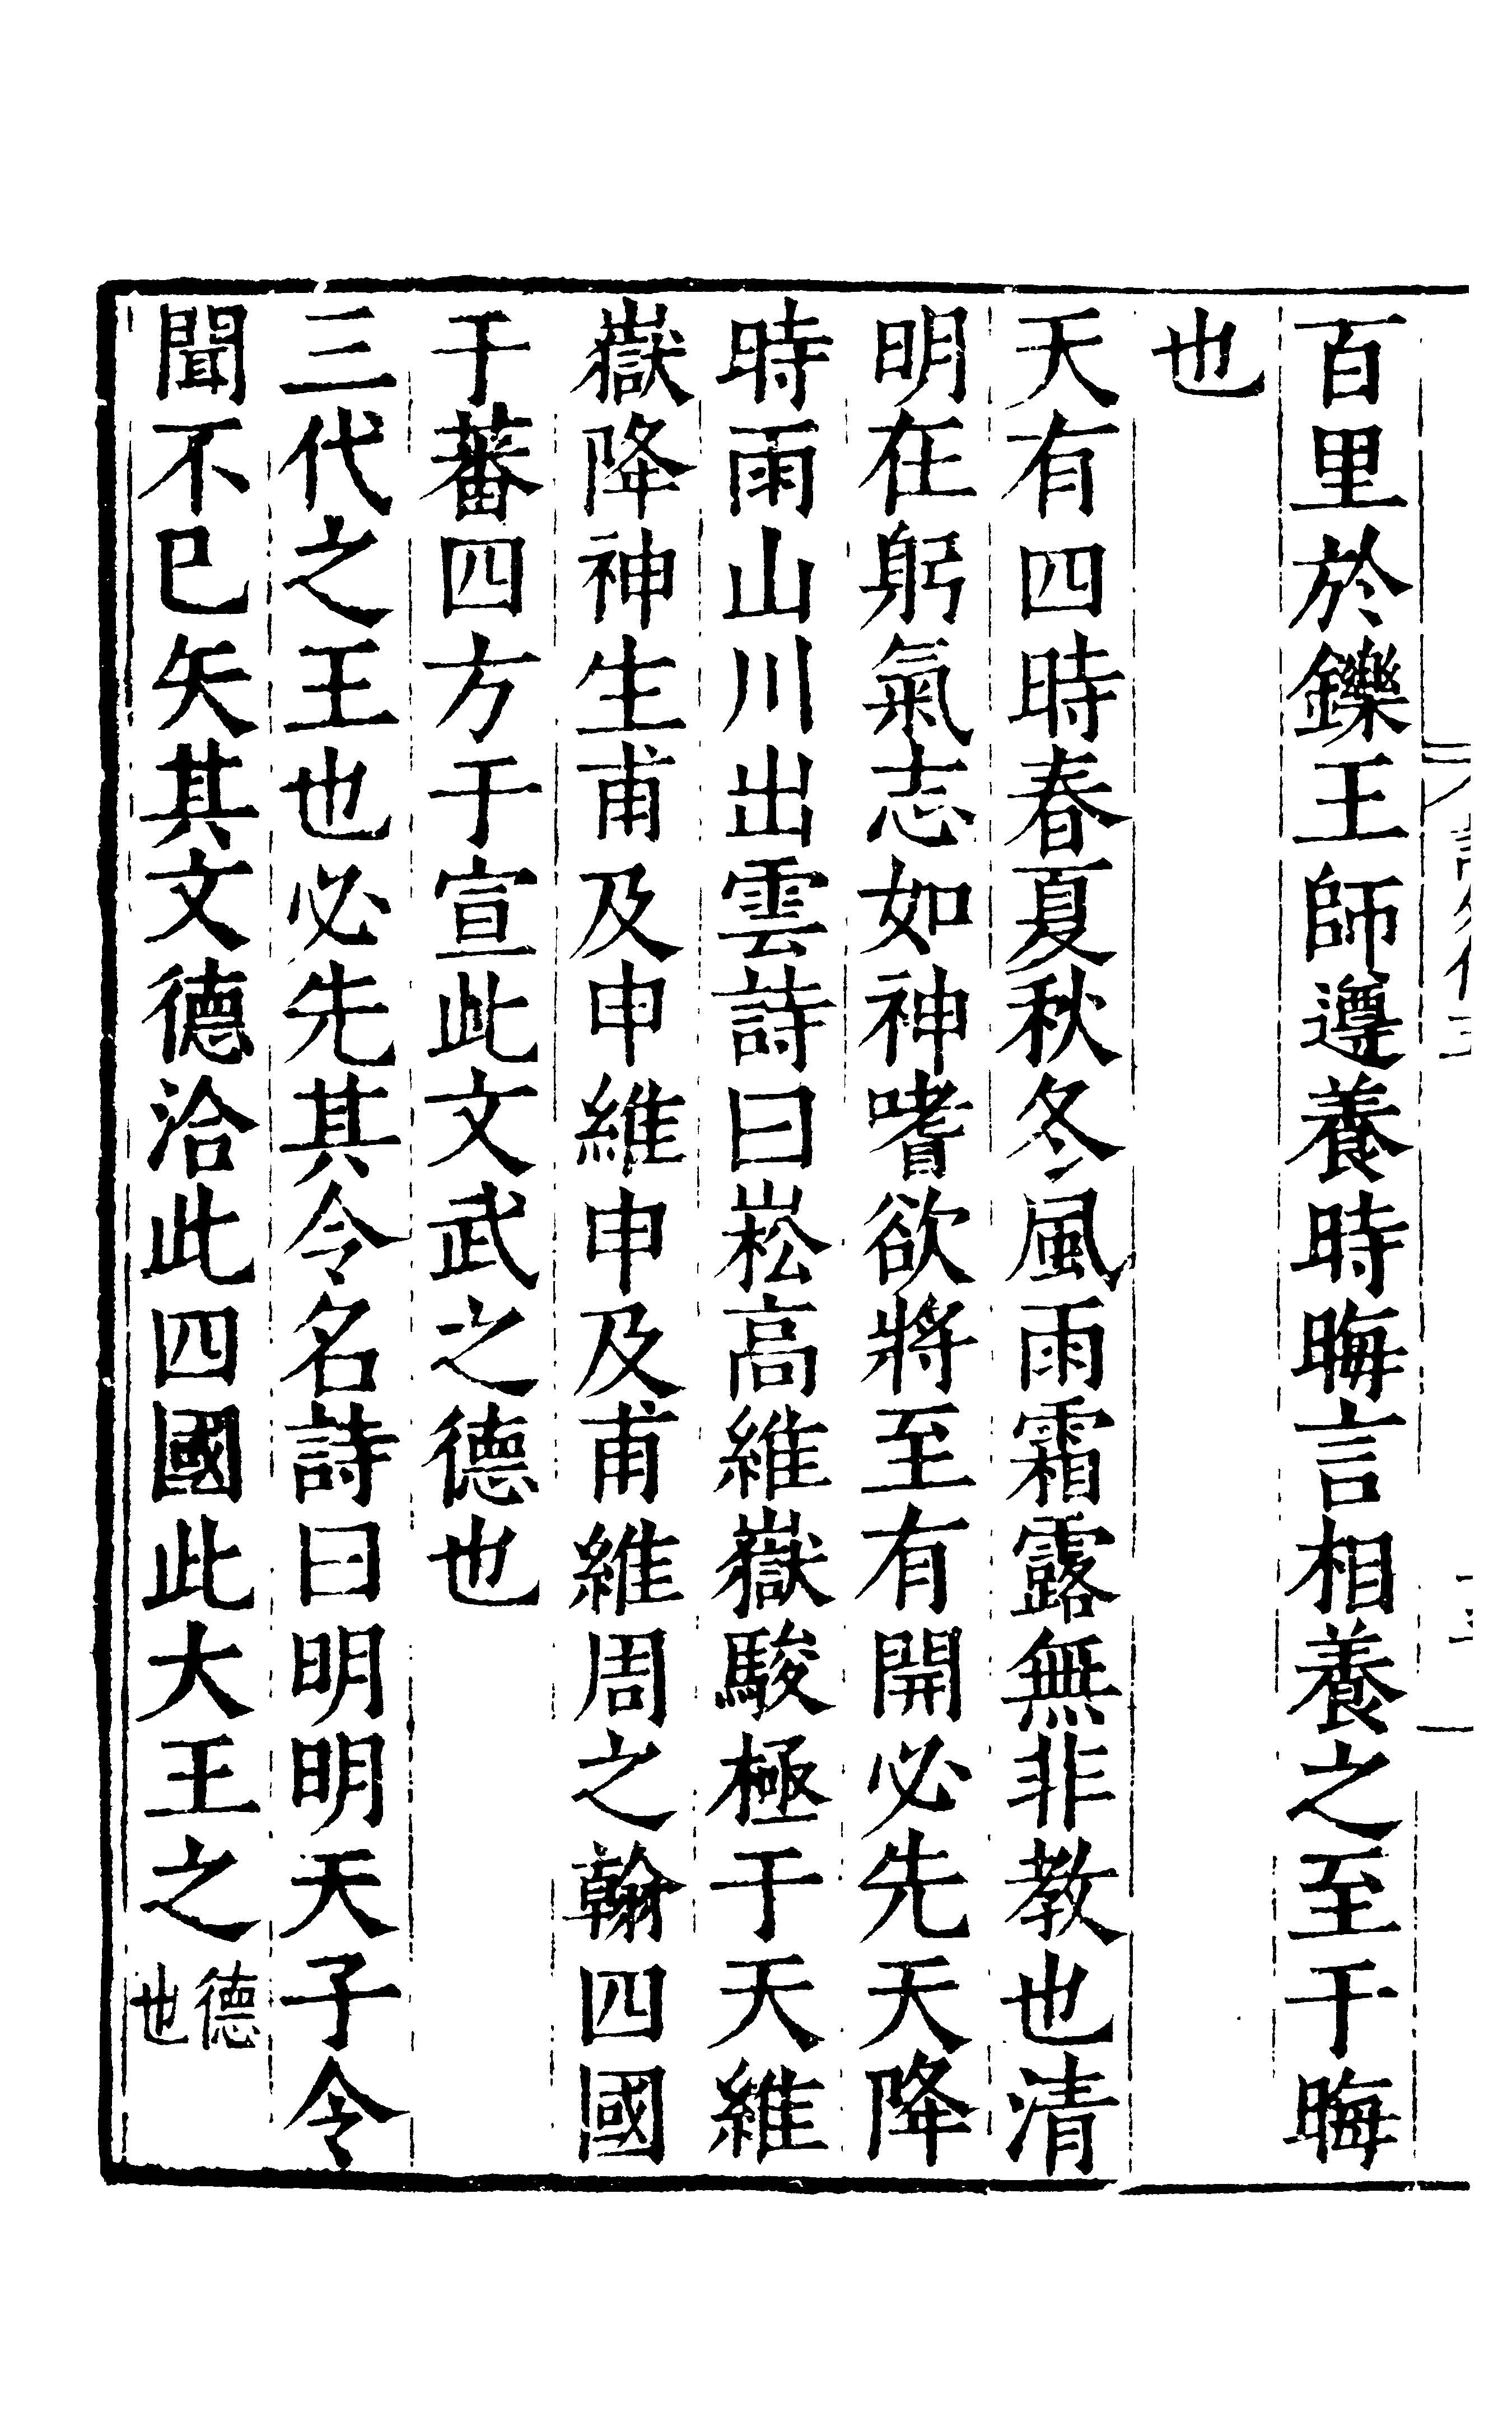 百里於鑠王師遵養時晦言相養之至于晦
也
天有四時春夏秋冬風雨霜露無非教也清
明在躬氣志如神嗜欲將至有開必先天降
時雨山川出雲詩曰崧高維嶽駿極于天維
嶽降神生甫及申維申及甫維周之翰四國
于蕃四方于宣此文武之德也
三代之王也必先其令名詩曰明明天子令
聞不已矢其文德洽此四國此大王之德也